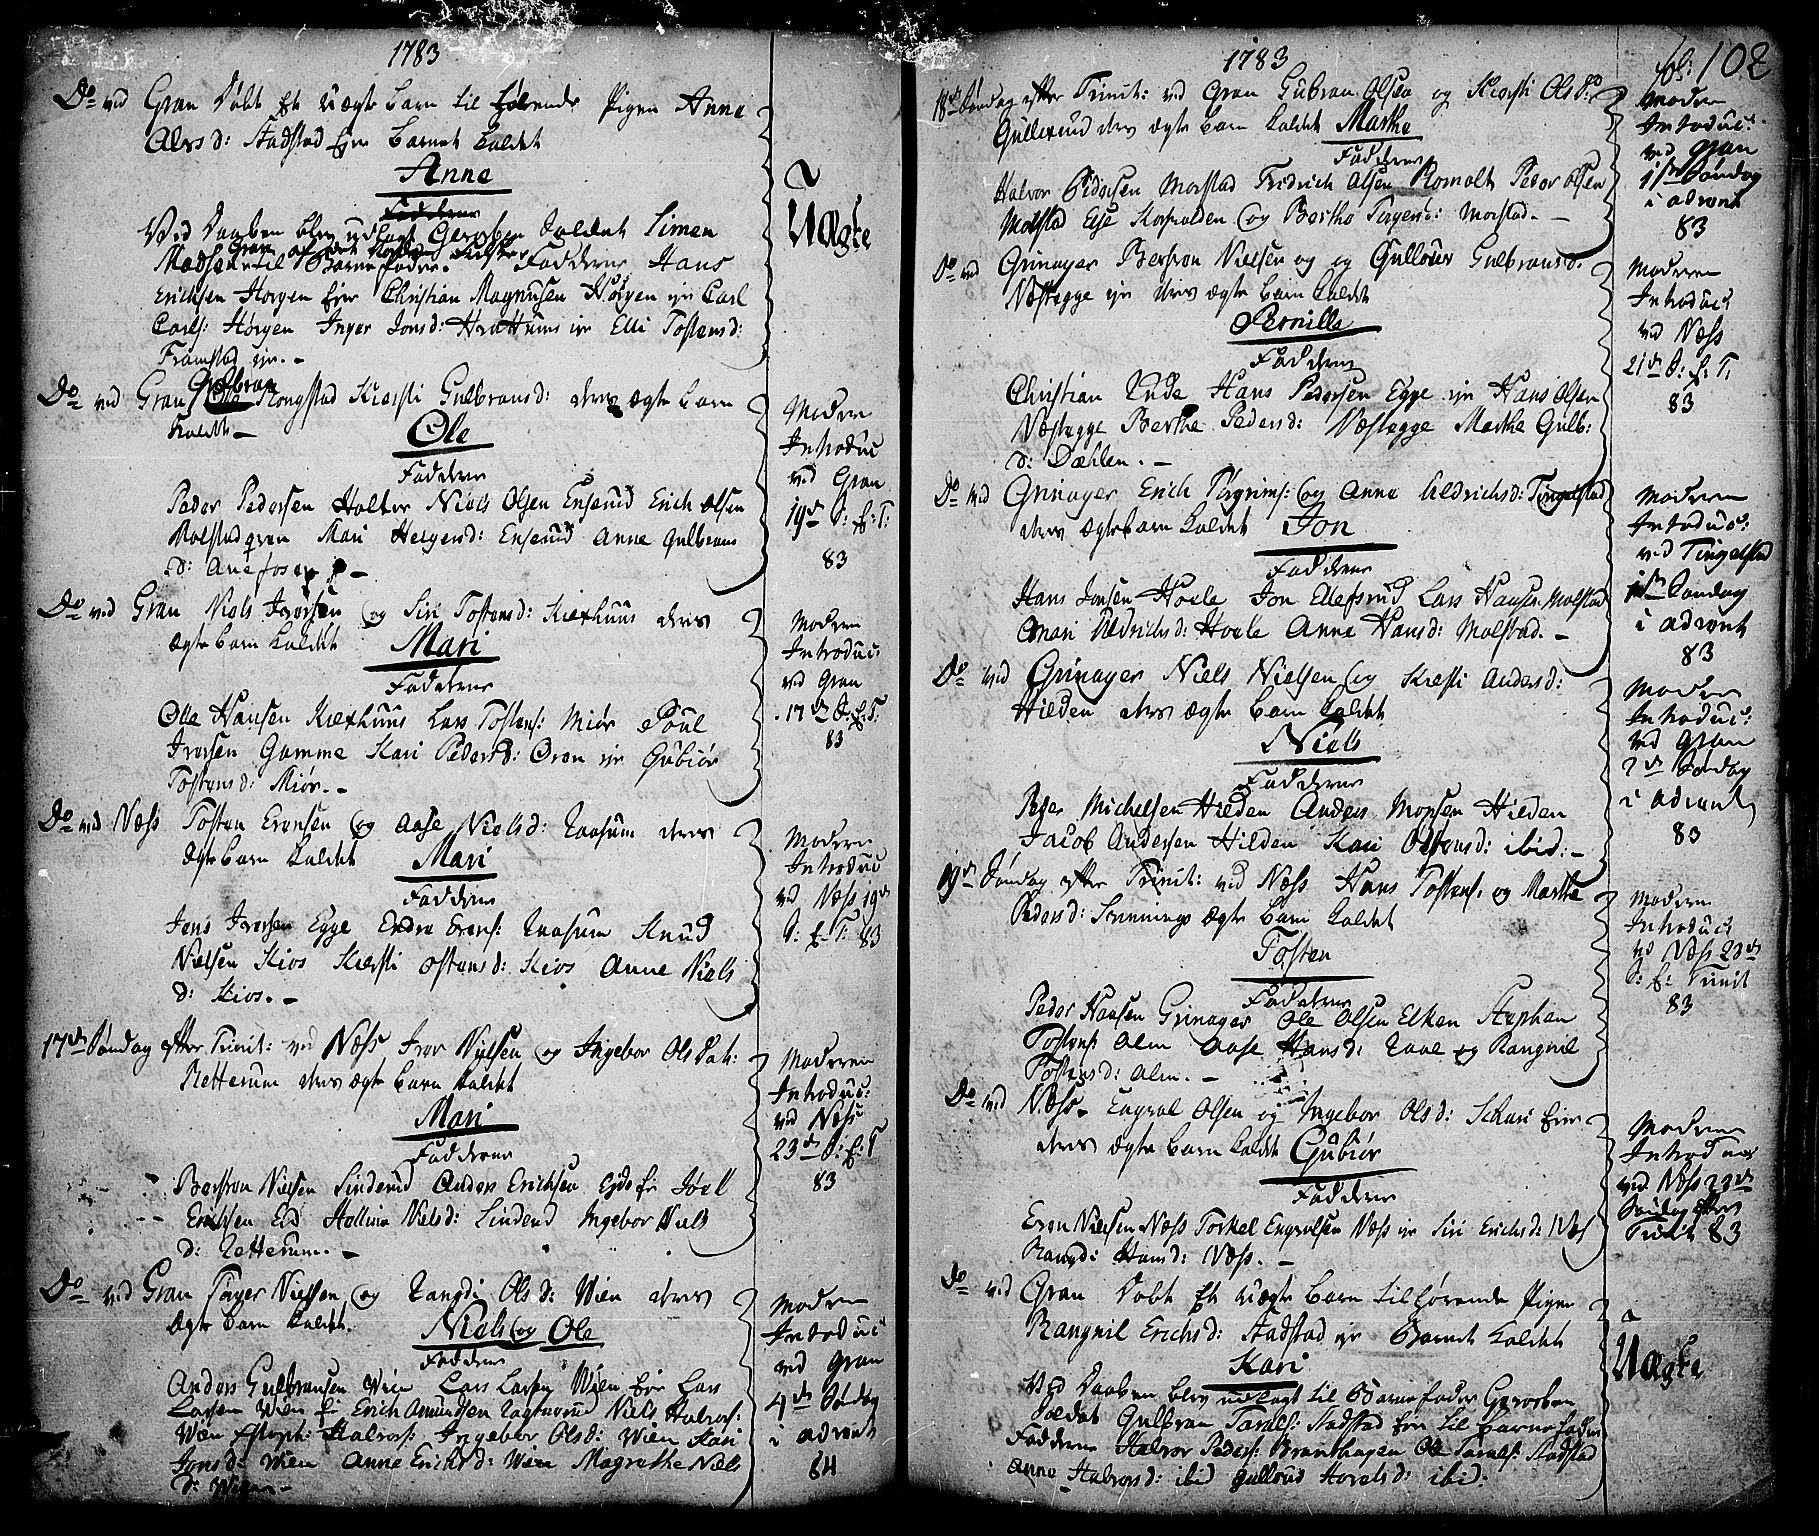 1783
Do ved Gran Døbt Et Uægte barn til hørende Pigen Anne
Alvsd: Aadstad Eje barnet kaldet
Anne
Fadderne
Ved Daaben blev udlagt Gevorben Soldat Simen
Madsen til Barne fader. Fadderne Hans
Erichsen Horgen Eje Christian Magnusen Horgen eje Carl
Carls: Horgen Inger Jonsd: eje Elli Tostensd:
Framstad eje. -
Do ved Gran Gulbran Kongstad Kiersti Gulbransd: deres ægte barn
kaldet -
Ole
Fadderne
Peder Pedersen Halter Niels Olsen Enserud Erich Olsen
Molstadgren Mari Helgesd: Enserud Anne Gulbrans
d: -
Do ved Gran Niels Iversen og Siri Tostensd: Kiexhuus deres
ægte barn kaldet Mari
Fadderne
Olle Hansen Kiexhuus Lars Tostens: Miør Poul
Iversen Gamme Kari Pedersd: Oren eje Gubiør
Tostensd: Miør. -
Do ved Næss Tosten Evensen og Aase Nielsd: Raasum deres
Ægte barn kaldet Mari
Fadderne
Jens Iversen Egge Endre Evens: Raasum Knud
Nielsen Kios Kiersti Ostensd: Kios Anne Niels
d: Kios. -
17de Søndag efter Trinit: ved Næss Iver Nielsen og Ingebor Ols Dat:
Retterum deres ægte barn kaldet
Mari
Fadderne
Berstvon Nielsen Linderud Anders Erichsen Eide Ej Joel
Erichsen Eid Nielsd: Linderud Ingebor Niels
d: Retterum. -
Do ved Gran Tøger Nielsen og Rangdi Olsd: Wien deres
Ægte barn kaldet. Niels og Ole
Fadderne
Anders Gulbransen Wien Lars Larsen Wien Eje Lars
Larsen Wien Ej Erich Amundsen Niels Halvors:
Wien Halvors: Ingebor Olsd: Wien Kari
Jonsd: Wien Anne Erichsd: Wien Magrethe Niels
d: Wien -
Uægte
Moderen
Introduc
ved Gran
19de S: E: T:
83
Moderen
Introduc:
ved Gran
17de S: E: T:
83
Moderen
Introduc
ved Næss 19de
S: E: T: 83
Moderen
Introduc:
ved Næss
23de S: E: T
83
Moderen
Introduc:
ved Gran
4de Søndag
i advent
84
1783
fol: 102
18de Søndag efter Trinit: ved Gran Gubran Olsen og Kiersti Ols D:
Gullerud deres ægte barn kaldet Marthe
Fadderne
Halvor Pedersen Morstad Fridrich Olsen Romolt Peder Olsen
Molstad Else og Berthe Torgersd: Morstad. -
Do ved Grinager Berstvon Nielsen og og Gulloug Gulbransd:
Næstegge eje deres ægte barn kaldet
Pernille
Fadderne
Christian Hans Pedersen Egge eje Hans Olsen
Næstegge Berthe Pedersd: Næstegge Marthe Gulb:
d: Dæhlen. -
Do ved Grinager Erich Torgrims: og Anne Aldrichsd: Tingelstad
deres ægte barn kaldet Jon
Fadderne
Hans Jonsen Hoele Jon Ellefsrud Lars Hansen Molstad
Mari Aldrichsd: Hoele Anne Hansd: Molstad. -
Do ved Grinager Niels Nielsen og Kiersti Andersd:
Hilden deres ægte barn kaldet
Niels
Fadderne
Peder Michelsen Hilden Anders Monsen Hilden
Jacob Andersen Hilden Kari Ostensd: ibid: -
19de Søndag efter Trinit: ved Næss Hans Tostens: og Marthe
Pedersd: Ægte barn kaldet
Tosten
Fadderne
Peder Hansen Grinager Ole Olsen Elken Stephen
Tostens: Alm Aase Hansd: og Rangnil
Tostensd: Alm. -
Do ved Næss. Engvol Olsen og Ingebor Olsd: Schari Eier
deres ægte barn kaldet Gubiør
Fadderne
Even Nielsen Næss Torkel Engvolsen Næss eje Siri Erichsd: Næs
Rangdi Hansd: Næss. -
Do ved Gran Døbt Et Uægte barn tilhørende Pigen
Rangnil Erichsd: Aadstad eje Barnet kaldet
Kari
Ved Daaben blev udlagt til Barnefader Gevorben
Soldat Gulbran Taralds: Aadstad Eje til barnefader
Fadderne Halvor Peders: Brandhagen Ole Taralds: Aadstad
Anne Halvorsd: ibid Gulloug Haralsd: ibid:
Moderen
Introduc:
ved Gran
1ste Søndag
i advent
83
Moderen
Introduc:
ved Næss
21de S: E: T:
83
Moderen
Introduc:
ved Tingelstad
1ste Søndag
i advent
83
Moderen
Introduc:
ved Gran
2de Søndag
i advent
83
Moderen
Introduc
ved Næss 23de
S: E: Trinit
83
Moderen
Introduc
ved Næss 23de
Søndag efter
Trinit 83
Uægte